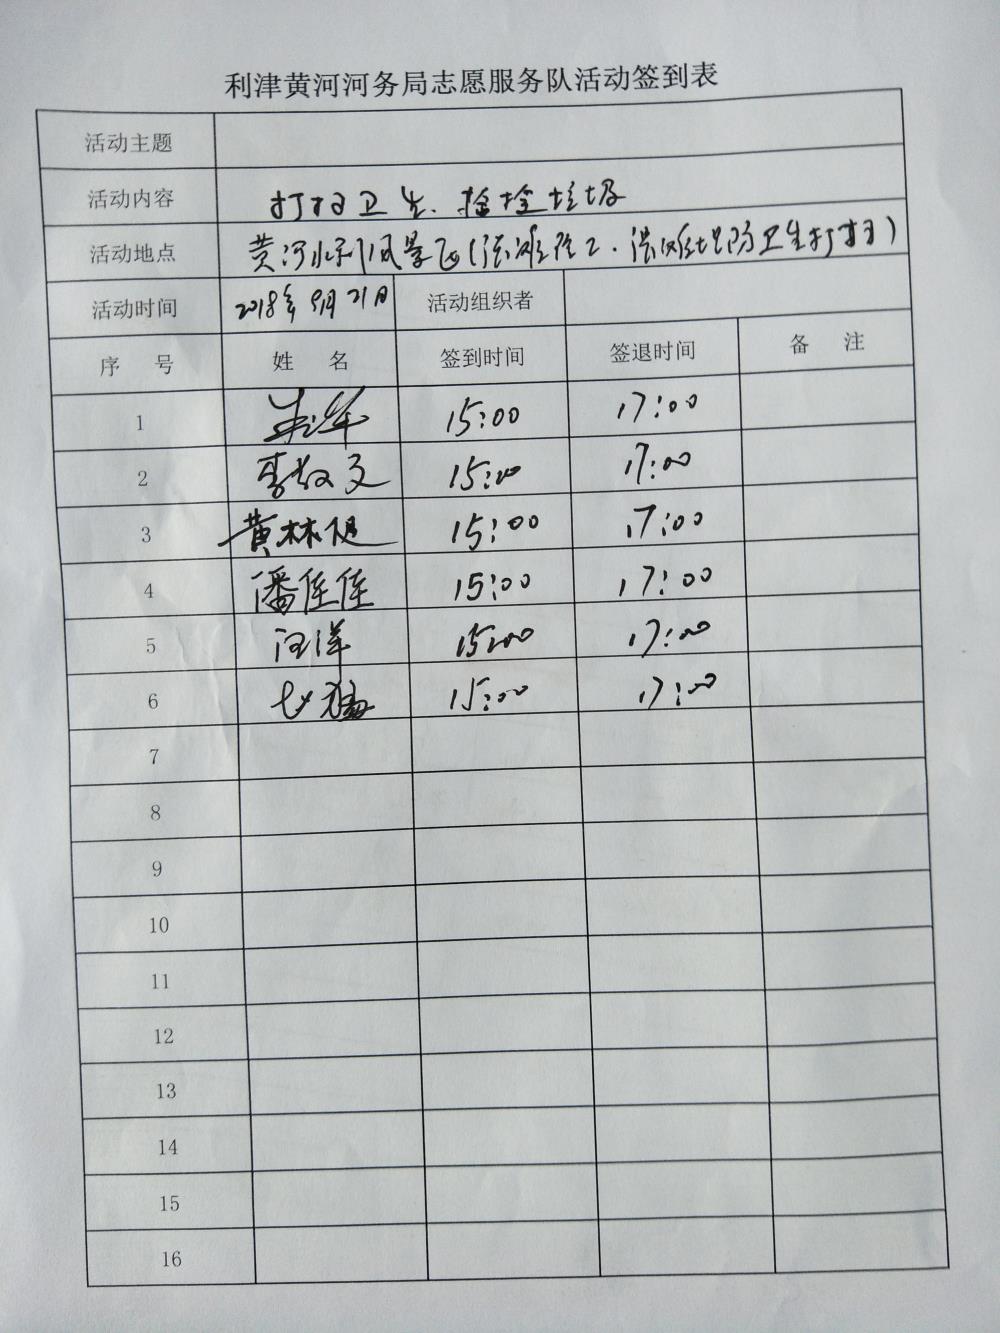 利津黄河河务局志愿服务队活动签到表
活动主题
活动内容 打扫卫生、捡捡垃圾
活动地点 黄河水利风景区(
卫生打扫)
活动时间 2018年9月21日 活动组织者
序 号 姓 名 签到时间 签退时间 备 注
1 15:00 17:00
2 李敬文 15:00 17:00
3 黄林旭 15:00 17:00
4 潘佳佳 15:00 17:00
5 汪洋 15:00 17:00
6 15:00 17:00
7
8
9
10
11
12
13
14
15
16